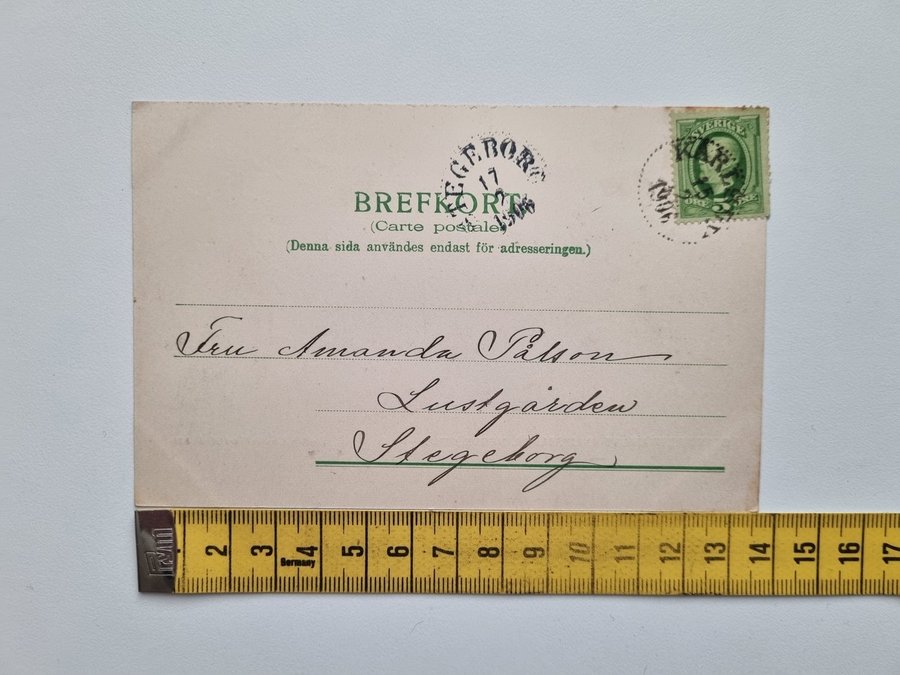 STEGEBORG
17
1906
SVERIGE
5
ÖRE
1906
BREFKORT
(Carte postale)
(Denna sida användes endast för adresseringen.)
Fru Amanda Pålson
Lustgården
Stegeborg
2 3 4 5 6 7 8 9 10 11 12 13 14 15 16 17
Germany